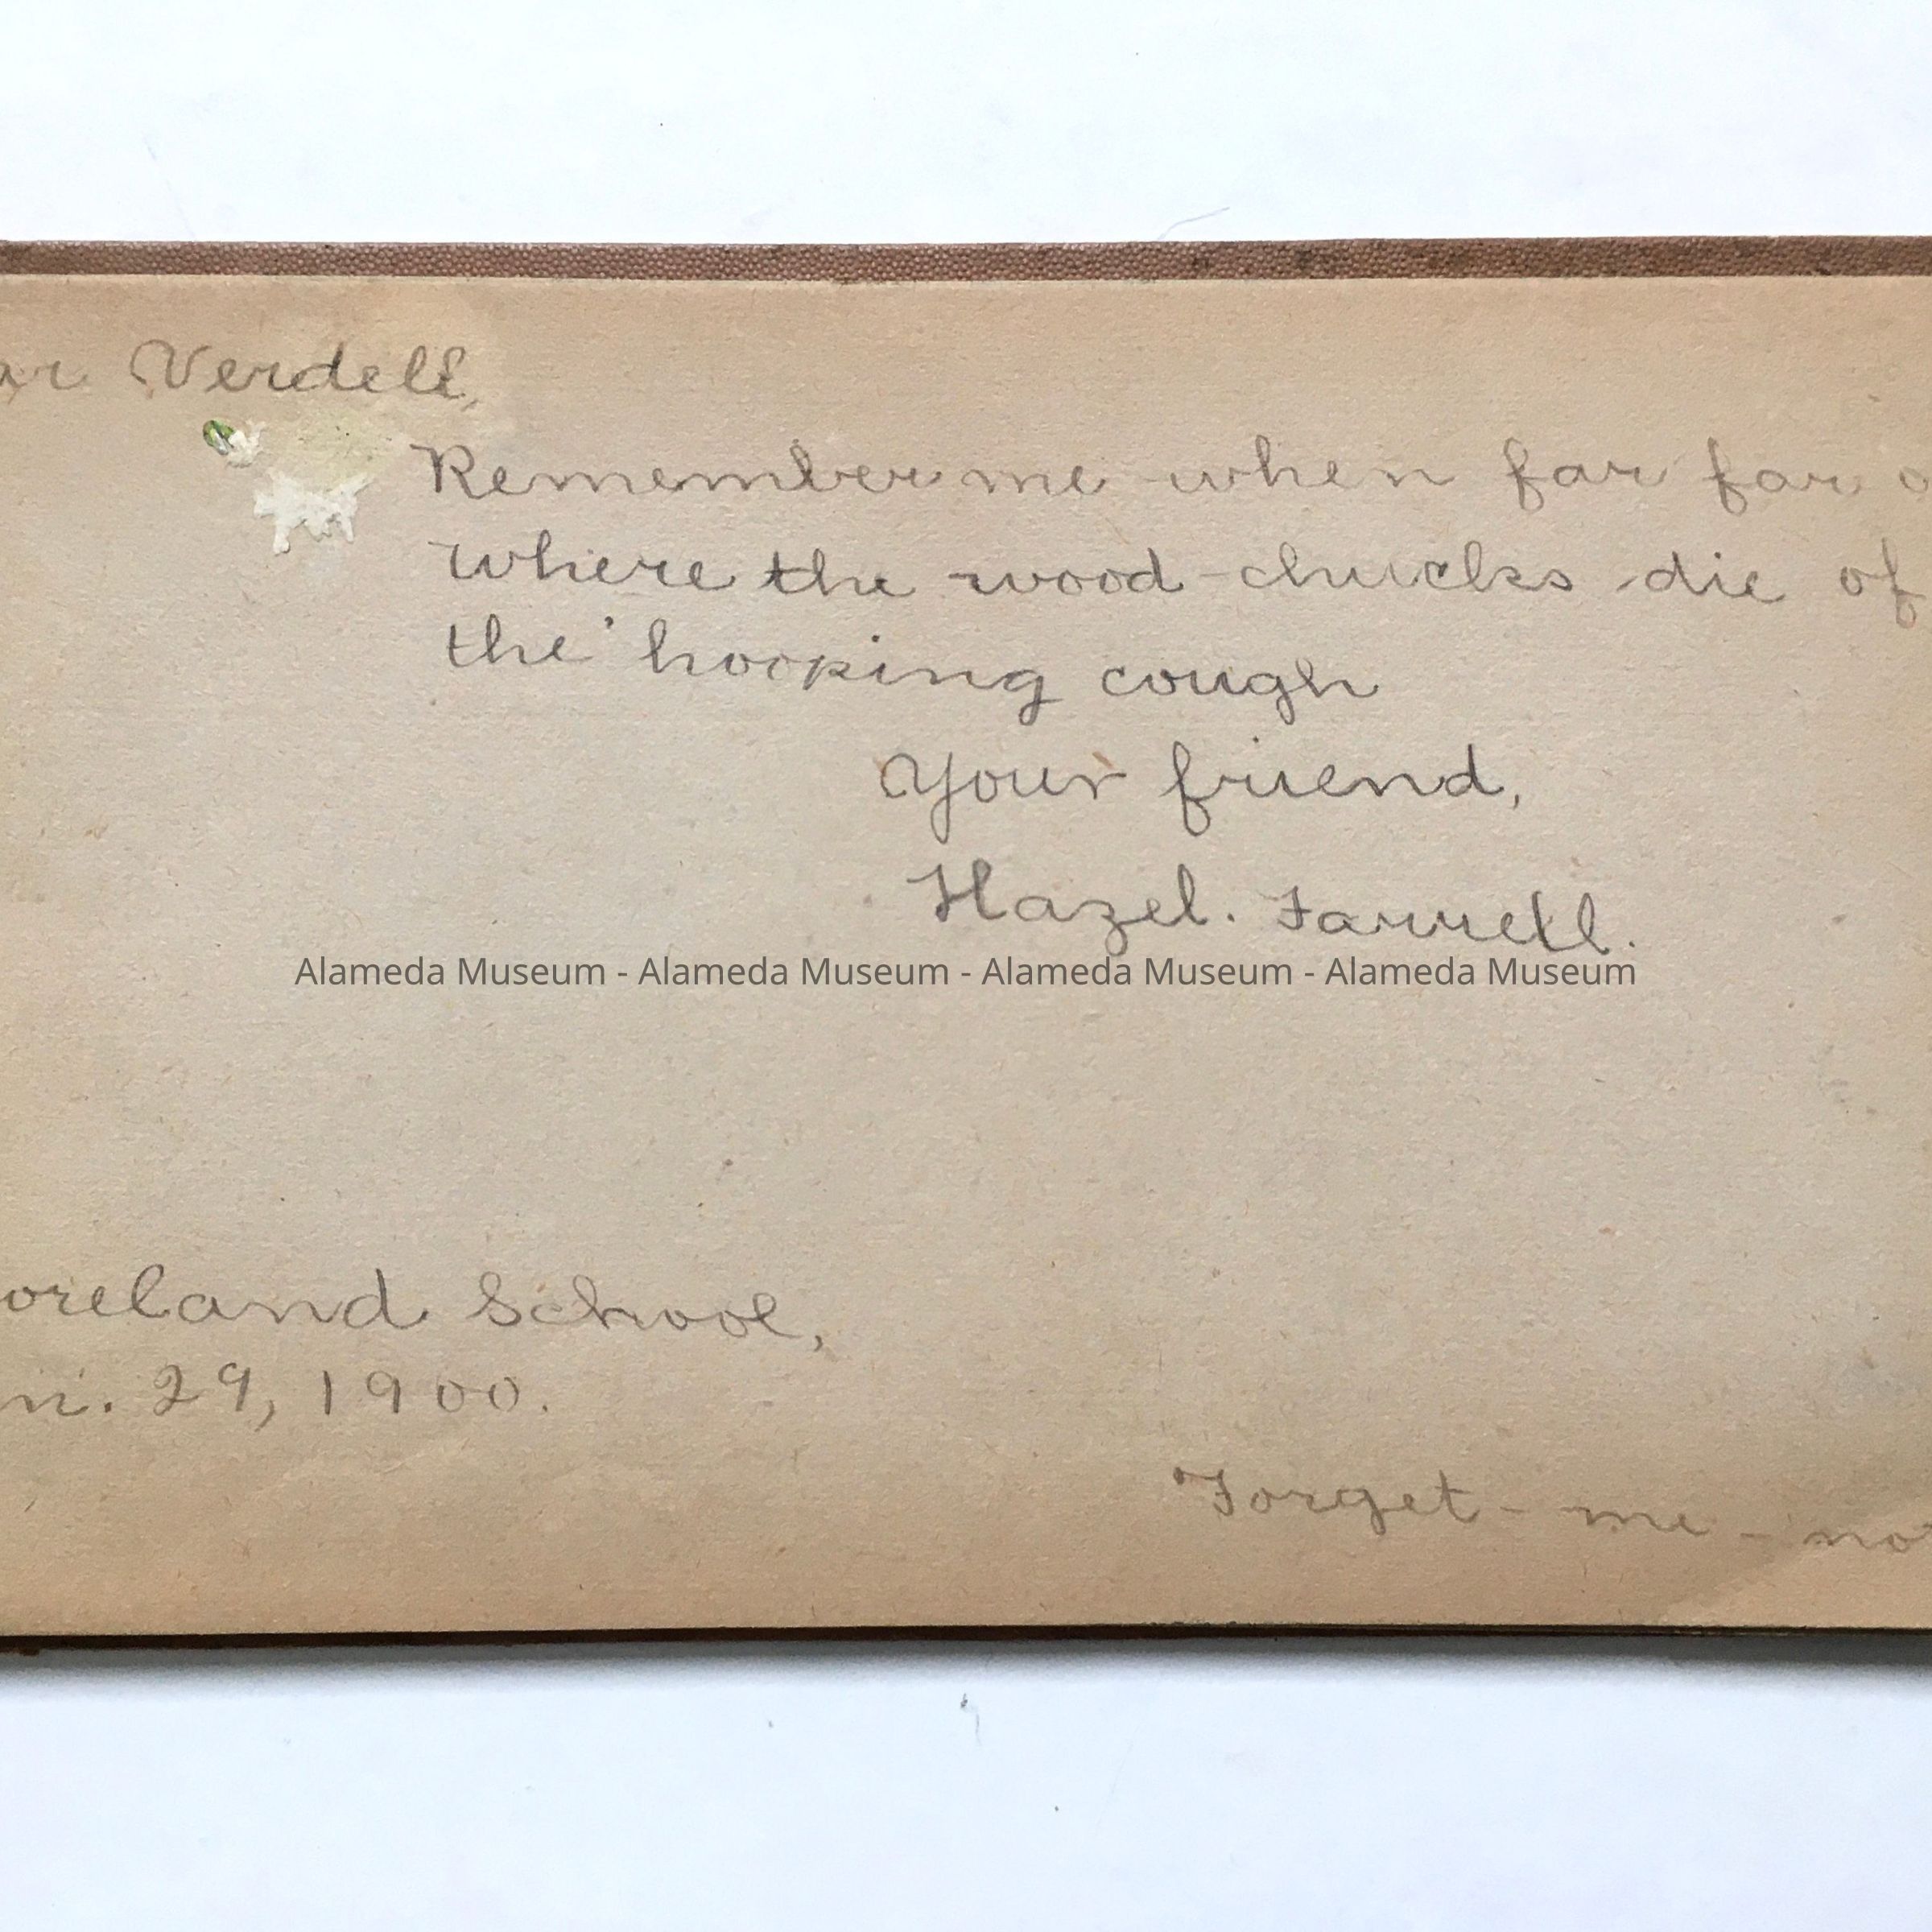 ar Verdell,
Remember me when far far o
where the wood-chucks die of
the 'hooping cough
Your friend,
Hazel. Farrell.
Alameda Museum - Alameda Museum - Alameda Museum - Alameda Museum
oreland School,
n. 29, 1900.
Forget-me-not